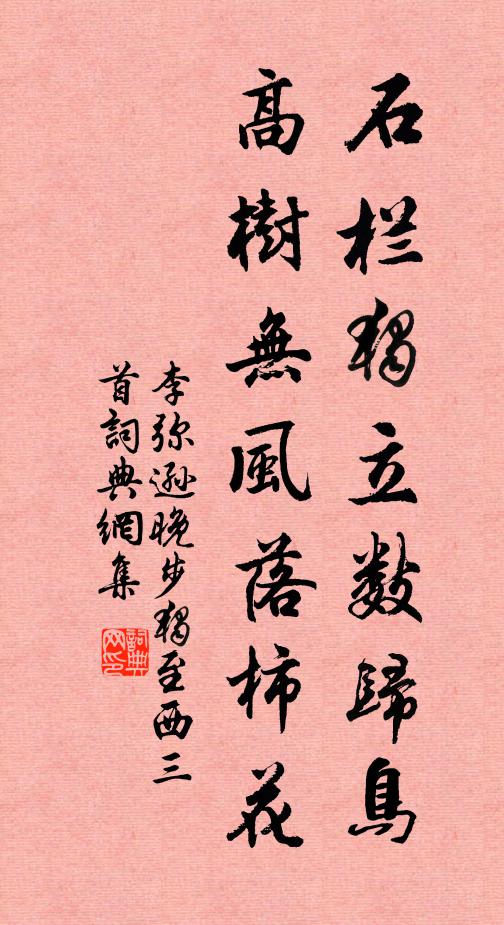 石栏獨立数歸鳥
高樹無風落柿花
李弥遜晚步獨至西三
首詞典網集
詞典
网印